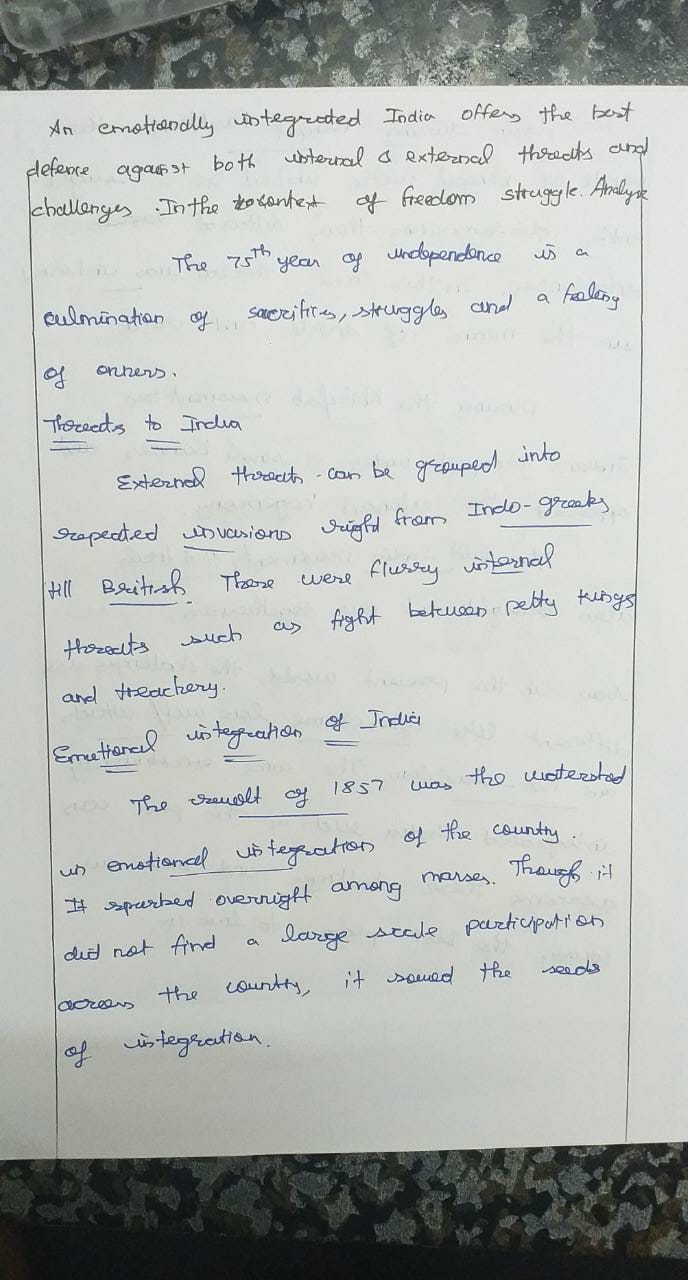 An emotionally integrated India offers the best
defence against both internal & external threats and
challenges. In the context of freedom struggle. Analyse
The 75th year of independence is a
culmination of sacrifices, struggles and a feeling
of onners.
Threats to India
External threats can be grouped into
repeated invasions right from Indo-greeks
till British. There were flurry internal
threats such as fight between petty kings
and treachery.
Emotional integration of India
The revolt of 1857 was the watershed
in emotional integration of the country.
It sparked overnight among masses. Though it
did not find a large scale participation
across the country, it sowed the seeds
of integration.